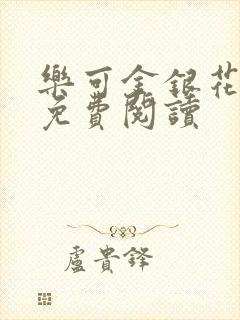 樂可金銀花
免費閱讀
盧貴鋒